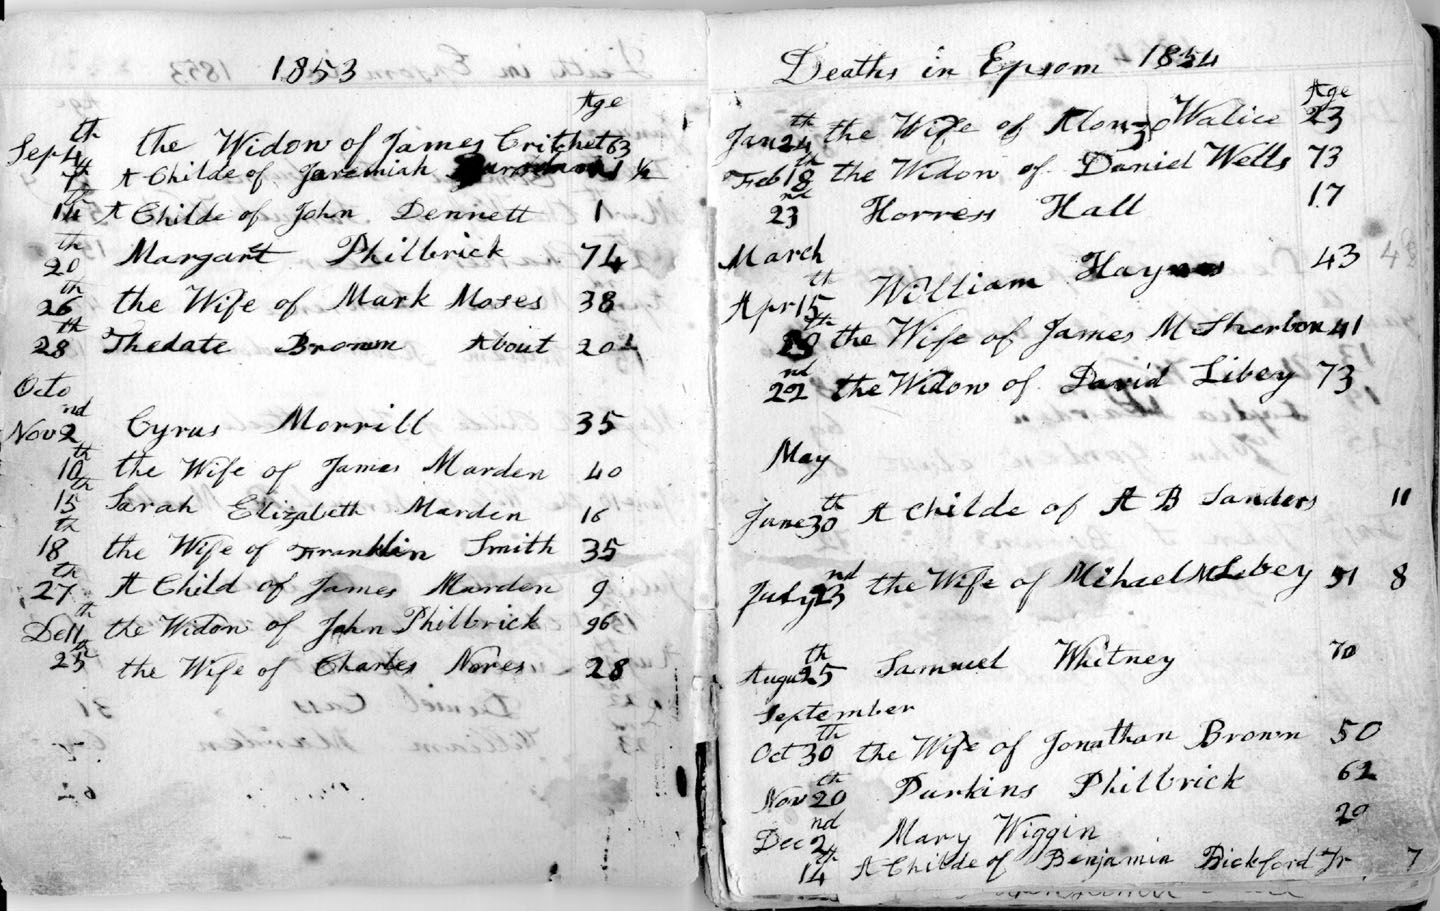 1853
Age
Sept 4th the Widow of James Critchet 63
7th A Childe of Jaremiah 1 ½
14th A Childe of John Dennett 1
20th Margaret Philbrick 74
26th the Wife of Mark Moses 38
28th Thedate Brown About 20
Octo
Nov 2nd Cyrus Morrill 35
10th the Wife of James Marden 40
15th Sarah Elizabeth Marden 16
18th the Wife of Franklin Smith 35
27th A Child of James Marden 9
De 11th the Widow of John Philbrick 96
25th the Wife of Charles Nores 28
Deaths in Epsom 1854
Age
Jan 24th the Wife of Alonzo Wallice 23
Feb 18th the Widow of Daniel Wells 73
23nd Horress Hall 17
March
Apr 15th William Haynes 43
20th the Wife of James M Sherbon 41
22nd the Widow of David Libey 73
May
June 30th A Childe of A B Sanders 11
July 23nd the Wife of Mihael M Libey 51 8
Augu 25th Samuel Whitney 70
September
Oct 30th the Wife of Jonathan Brown 50
Nov 20th Purkins Philbrick 62
Dec 2nd Mary Wiggin 20
14th A Childe of Benjamin Bickford Jr 7